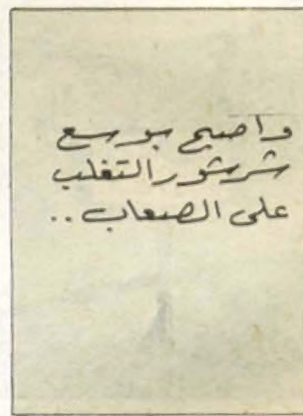 واصبح بوسع
شرشور التغلب
على الصعاب ..